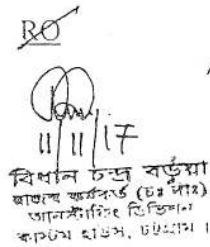 RO
11/11/17
বিধান চন্দ্র বড়ুয়া
রাজস্ব কর্মকর্তা (চঃ দাঃ)
আনস্টাফিং ডিভিশন
কাস্টম হাউস, চট্টগ্রাম।